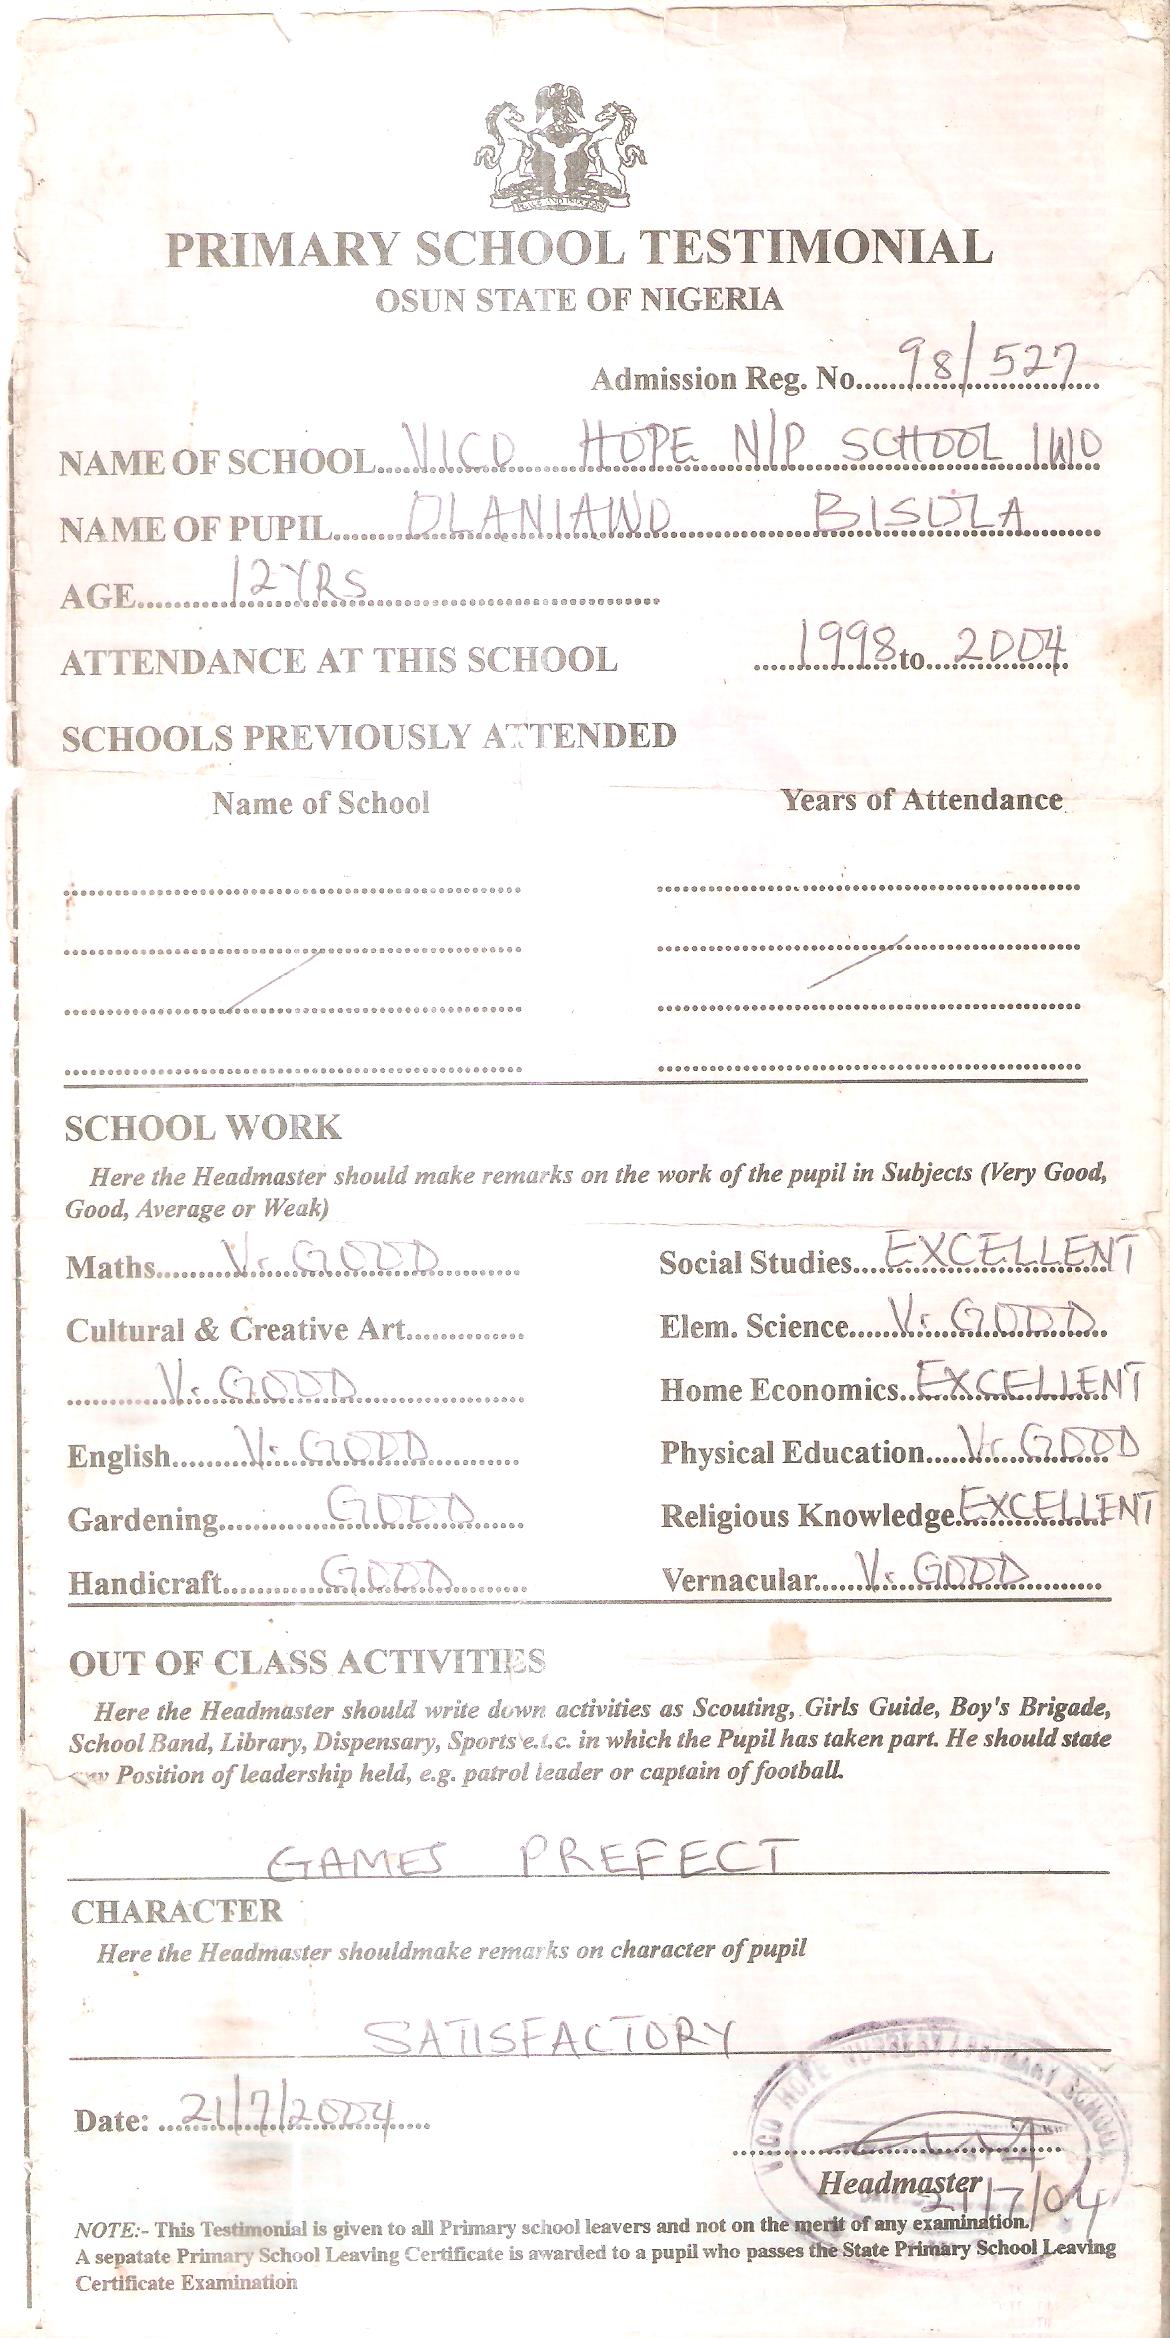 PEACE AND PROGRESS
PRIMARY SCHOOL TESTIMONIAL
OSUN STATE OF NIGERIA
Admission Reg. No. 98/527
NAME OF SCHOOL VICO HOPE N/P SCHOOL IWO
NAME OF PUPIL OLANIAWO BISOLA
AGE 12YRS
ATTENDANCE AT THIS SCHOOL 1998 to 2004
SCHOOLS PREVIOUSLY ATTENDED
Name of School Years of Attendance
SCHOOL WORK
Here the Headmaster should make remarks on the work of the pupil in Subjects (Very Good,
Good, Average or Weak)
Maths V. GOOD Social Studies EXCELLENT
Cultural & Creative Art Elem. Science V. GOOD
V. GOOD Home Economics EXCELLENT
English V. GOOD Physical Education V. GOOD
Gardening GOOD Religious Knowledge EXCELLENT
Handicraft GOOD Vernacular V. GOOD
OUT OF CLASS ACTIVITIES
Here the Headmaster should write down activities as Scouting, Girls Guide, Boy's Brigade,
School Band, Library, Dispensary, Sports e.t.c. in which the Pupil has taken part. He should state
Position of leadership held, e.g. patrol leader or captain of football.
GAMES PREFECT
CHARACTER
Here the Headmaster shouldmake remarks on character of pupil
SATISFACTORY
VICO HOPE NURSERY / PRIMARY SCHOOL
Date: 21/7/2004
Headmaster
21/7/04
NOTE:- This Testimonial is given to all Primary school leavers and not on the merit of any examination.
A sepatate Primary School Leaving Certificate is awarded to a pupil who passes the State Primary School Leaving
Certificate Examination